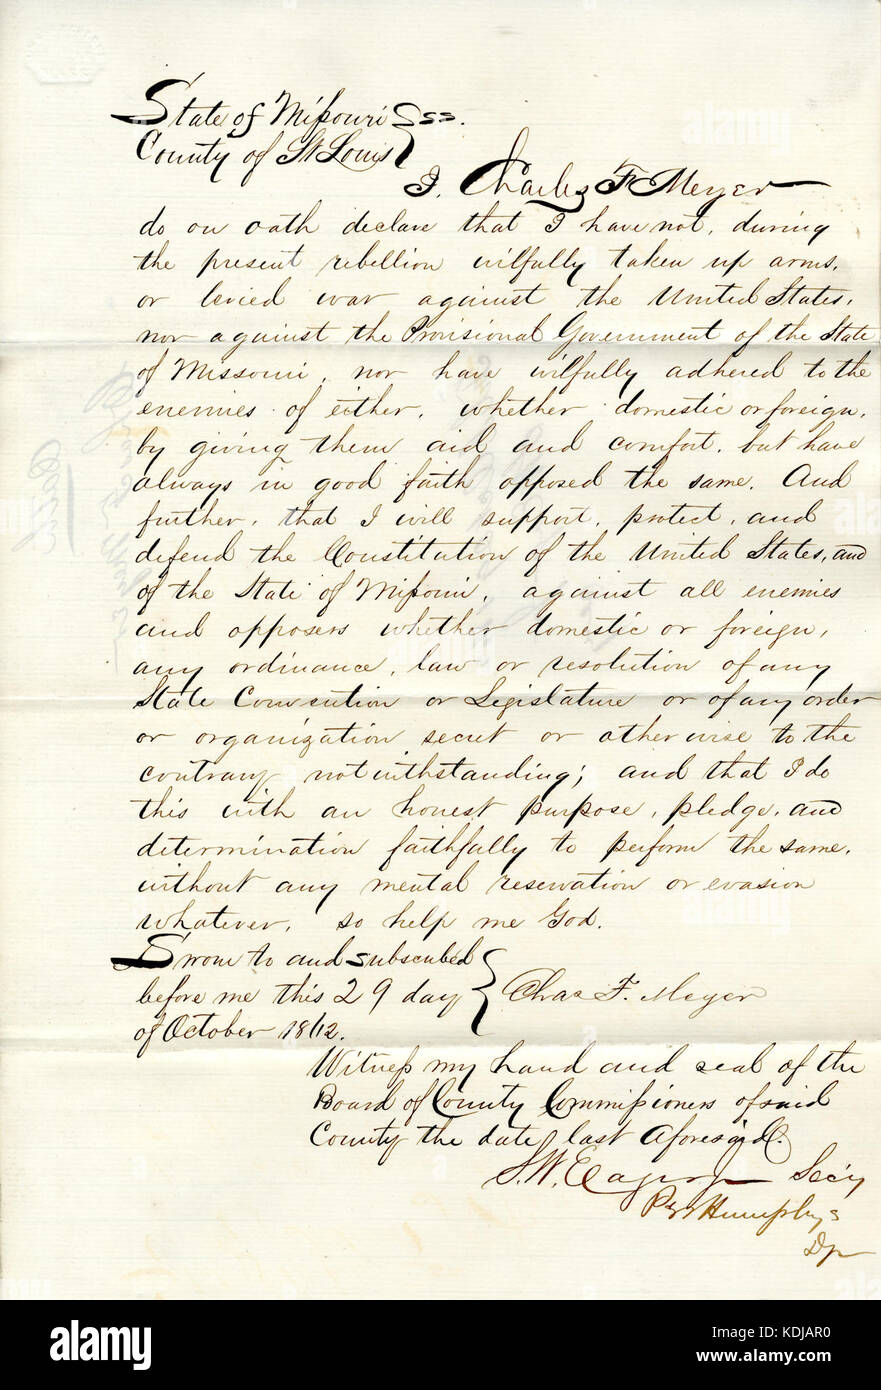 State of Missouri } ss.
County of St Louis
I, Charles F Meyer
do on oath declare that I have not, during
the present rebellion wilfully taken up arms,
or levied war against the United States,
nor against the Provisional Government of the State
of Missouri, nor have wilfully adhered to the
enemies of either, whether domestic or foreign,
by giving them aid and comfort, but have
always in good faith opposed the same. And
further, that I will support, protect, and
defend the Constitution of the United States, and
of the State of Missouri, against all enemies
and opposers whether domestic or foreign,
any ordinance, law or resolution of any
State Convention or Legislature or of any order
or organization secret or otherwise to the
contrary notwithstanding; and that I do
this with an honest purpose, pledge, and
determination faithfully to perform the same,
without any mental reservation or evasion
whatever, so help me God.
Sworn to and subscribed
before me this 29 day } Chas F. Meyer
of October 1862.
Witness my hand and seal of the
Board of County Commissioners of said
County the date last Aforesaid.
S. W. Secy
Humphrys
Dp
alamy
Image ID: KDJAR0
www.alamy.com